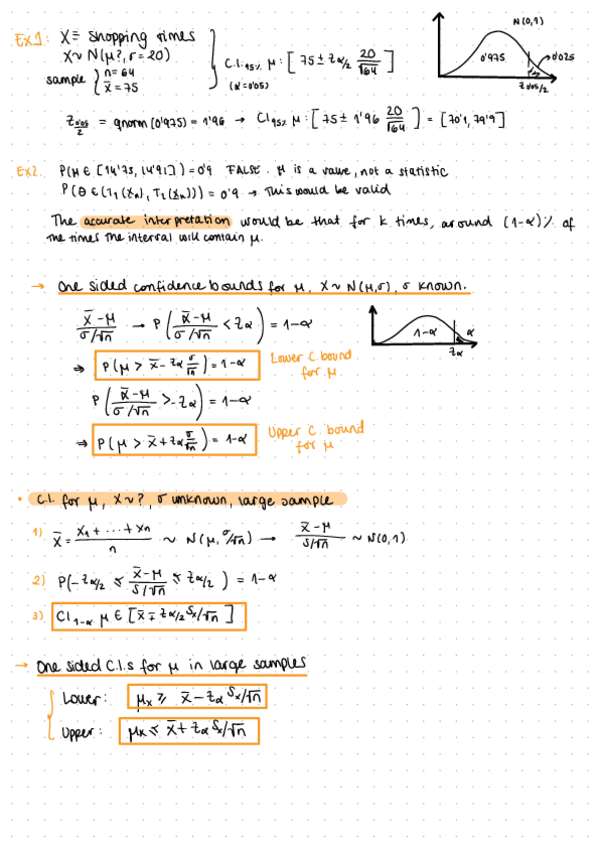 Ex1: X ≡ shopping times
X ~ N(μ?, σ = 20)
sample { n = 64
x̄ = 75
C.I.95% μ : [ 75 ± zα/2 20/√64 ]
(α = 0'05)
N(0,1)
0'975
0'025
z0'05/2
z0'05/2 = qnorm(0'975) = 1'96 → CI95% μ : [ 75 ± 1'96 20/√64 ] = [70'1, 79'9]
Ex2. P(μ ∈ [14'75, 14'91]) = 0'9 FALSE. μ is a value, not a statistic
P(θ ∈ (T1(Xn), T2(Xn))) = 0'9 → This would be valid
The accurate interpretation would be that for k times, around (1-α)% of
the times the interval will contain μ.
→ One sided confidence bounds for μ, X ~ N(μ,σ), σ known.
x̄-μ / σ/√n → P( x̄-μ / σ/√n < zα ) = 1-α
1-α
α
zα
⇒ P(μ > x̄ - zα σ/√n) = 1-α Lower C. bound
for μ
P( x̄-μ / σ/√n > -zα ) = 1-α
⇒ P(μ > x̄ + zα σ/√n) = 1-α Upper C. bound
for μ
• C.I. for μ, X ~ ?, σ unknown, large sample
1) x̄ = x1 + ... + xn / n ~ N(μ, σ/√n) → x̄-μ / S/√n ~ N(0,1)
2) P(-zα/2 ≤ x̄-μ / S/√n ≤ zα/2) = 1-α
3) CI1-α μ ∈ [x̄ ∓ zα/2 Sx/√n ]
→ One sided C.I.s for μ in large samples
Lower: μx ≥ x̄ - zα Sx/√n
Upper: μx ≤ x̄ + zα Sx/√n